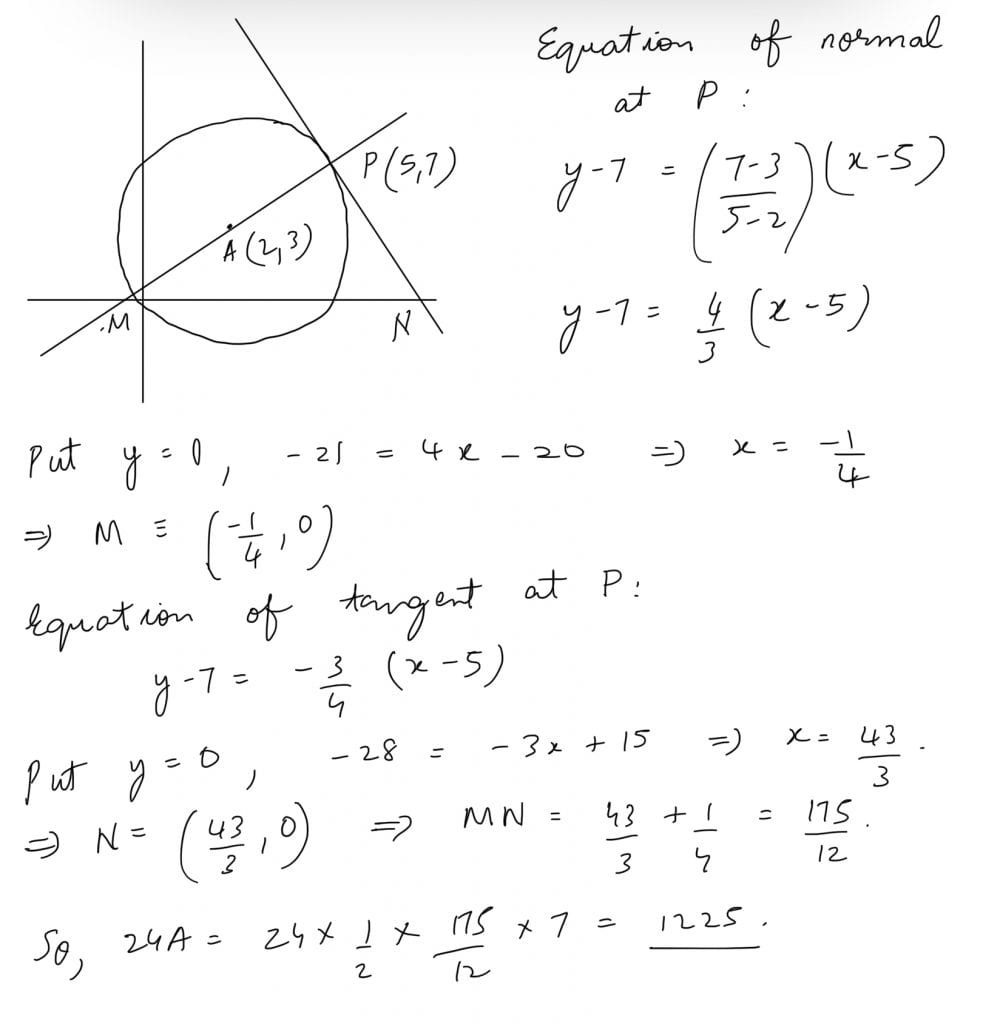 Equation of normal
at P :
y-7 = ((7-3)/(5-2)) (x-5)
y-7 = 4/3 (x-5)
P(5,7)
A(2,3)
.M
N
Put y=0, -21 = 4x - 20 ⇒ x = -1/4
⇒ M ≡ (-1/4, 0)
Equation of tangent at P:
y-7 = -3/4 (x-5)
Put y=0, -28 = -3x + 15 ⇒ x = 43/3 .
⇒ N = (43/3, 0) ⇒ MN = 43/3 + 1/4 = 175/12 .
So, 24A = 24 × 1/2 × 175/12 × 7 = 1225 .